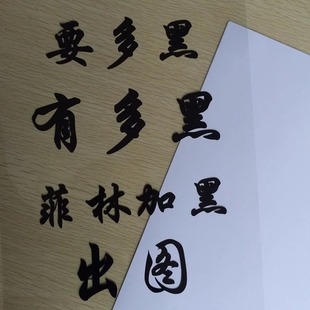 要多黑
有多黑
菲林加黑
出图